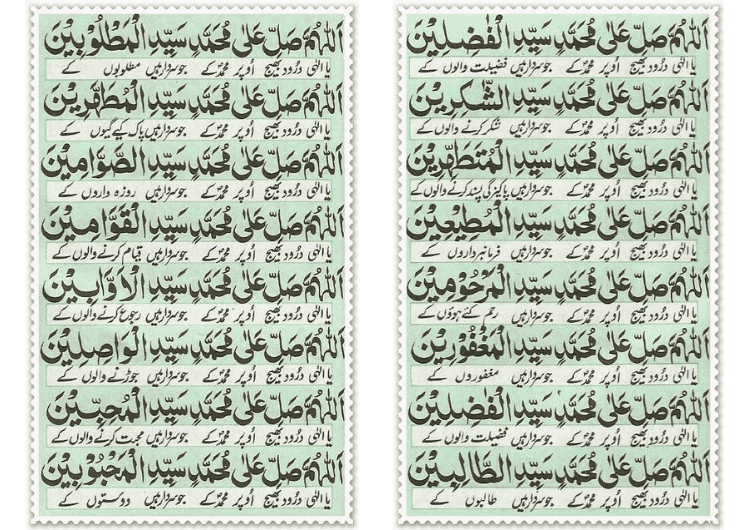 اَللّٰهُمَّ صَلِّ عَلٰى مُحَمَّدٍ سَيِّدِ الْفٰضِلِيْنَ
یا الٰہی درود بھیج اُوپر محمدؐ کے جو سردار ہیں فضیلت والوں کے
اَللّٰهُمَّ صَلِّ عَلٰى مُحَمَّدٍ سَيِّدِ الشّٰكِرِيْنَ
یا الٰہی درود بھیج اُوپر محمدؐ کے جو سردار ہیں شکر کرنے والوں کے
اَللّٰهُمَّ صَلِّ عَلٰى مُحَمَّدٍ سَيِّدِ الْمُتَطَهِّرِيْنَ
یا الٰہی درود بھیج اُوپر محمدؐ کے جو سردار ہیں پاکیزگی پسند کرنے والوں کے
اَللّٰهُمَّ صَلِّ عَلٰى مُحَمَّدٍ سَيِّدِ الْمُطِيْعِيْنَ
یا الٰہی درود بھیج اُوپر محمدؐ کے جو سردار ہیں فرمانبرداروں کے
اَللّٰهُمَّ صَلِّ عَلٰى مُحَمَّدٍ سَيِّدِ الْمَرْحُوْمِيْنَ
یا الٰہی درود بھیج اُوپر محمدؐ کے جو سردار ہیں رحم کئے ہوؤں کے
اَللّٰهُمَّ صَلِّ عَلٰى مُحَمَّدٍ سَيِّدِ الْمَغْفُوْرِيْنَ
یا الٰہی درود بھیج اُوپر محمدؐ کے جو سردار ہیں مغفوروں کے
اَللّٰهُمَّ صَلِّ عَلٰى مُحَمَّدٍ سَيِّدِ الْفٰضِلِيْنَ
یا الٰہی درود بھیج اُوپر محمدؐ کے جو سردار ہیں فضیلت والوں کے
اَللّٰهُمَّ صَلِّ عَلٰى مُحَمَّدٍ سَيِّدِ الطَّالِبِيْنَ
یا الٰہی درود بھیج اُوپر محمدؐ کے جو سردار ہیں طالبوں کے
اَللّٰهُمَّ صَلِّ عَلٰى مُحَمَّدٍ سَيِّدِ الْمَطْلُوْبِيْنَ
یا الٰہی درود بھیج اُوپر محمدؐ کے جو سردار ہیں مطلوبوں کے
اَللّٰهُمَّ صَلِّ عَلٰى مُحَمَّدٍ سَيِّدِ الْمُطَهَّرِيْنَ
یا الٰہی درود بھیج اُوپر محمدؐ کے جو سردار ہیں پاک کیے گیوں کے
اَللّٰهُمَّ صَلِّ عَلٰى مُحَمَّدٍ سَيِّدِ الصَّوَّامِيْنَ
یا الٰہی درود بھیج اُوپر محمدؐ کے جو سردار ہیں روزہ داروں کے
اَللّٰهُمَّ صَلِّ عَلٰى مُحَمَّدٍ سَيِّدِ الْقَوَّامِيْنَ
یا الٰہی درود بھیج اُوپر محمدؐ کے جو سردار ہیں قیام کرنے والوں کے
اَللّٰهُمَّ صَلِّ عَلٰى مُحَمَّدٍ سَيِّدِ الْاَوَّابِيْنَ
یا الٰہی درود بھیج اُوپر محمدؐ کے جو سردار ہیں رجوع کرنے والوں کے
اَللّٰهُمَّ صَلِّ عَلٰى مُحَمَّدٍ سَيِّدِ الْوَاصِلِيْنَ
یا الٰہی درود بھیج اُوپر محمدؐ کے جو سردار ہیں جوڑنے والوں کے
اَللّٰهُمَّ صَلِّ عَلٰى مُحَمَّدٍ سَيِّدِ الْمُحِبِّيْنَ
یا الٰہی درود بھیج اُوپر محمدؐ کے جو سردار ہیں محبت کرنے والوں کے
اَللّٰهُمَّ صَلِّ عَلٰى مُحَمَّدٍ سَيِّدِ الْمَحْبُوْبِيْنَ
یا الٰہی درود بھیج اُوپر محمدؐ کے جو سردار ہیں دوستوں کے